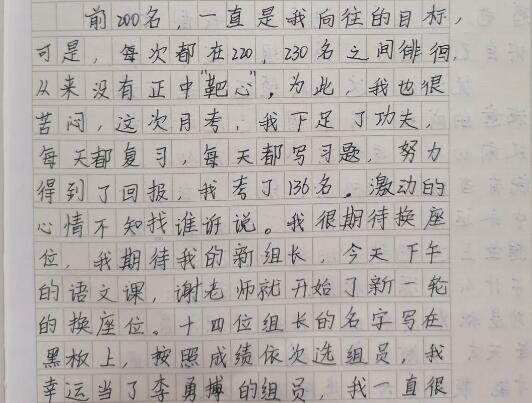 前200名，一直是我向往的目标，
可是，每次都在220，230名之间徘徊，
从来没有正中"靶心"。为此，我也很
苦闷，这次月考，我下足了功夫，
每天都复习，每天都写习题，努力
得到了回报，我考了136名。激动的
心情不知找谁诉说。我很期待换座
位，我期待我的新组长，今天下午
的语文课，谢老师就开始了新一轮
的换座位。十四位组长的名字写在
黑板上，按照成绩依次选组员，我
幸运当了李勇搏的组员，我一直很